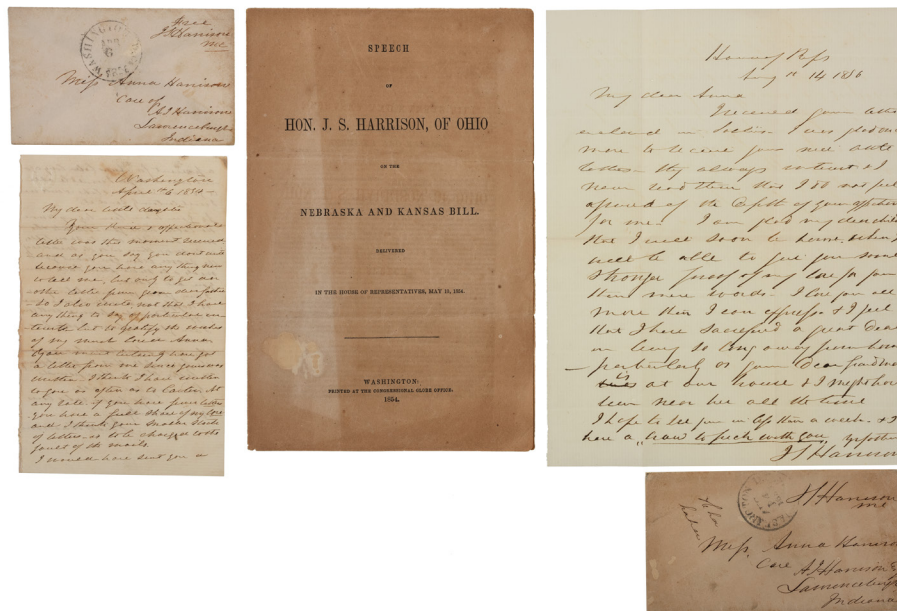 Free
J S Harrison
MC
WASHINGTON
APR
6
Miss Anna Harrison
Care of
Lawrenceburgh
Indiana
Washington
April 6 1854
My dear little daughter
letter was this moment received
and as you say you dont write
because you have any thing new
to tell me, but only to get an
other letter from your dear father
So I also write, not that I have
any thing to say of particular in
terest but to gratify the wishes
of my much loved Anna
a letter from me since you wrote
written. I think I have written
to you as often as to Carter. At
any rate if you have fewer letters
you have a full share of my love
and I think your smaller stock
of letters is to be charged to the
fault of the mails
I would have sent you a
SPEECH
OF
HON. J. S. HARRISON, OF OHIO
ON THE
NEBRASKA AND KANSAS BILL.
DELIVERED
IN THE HOUSE OF REPRESENTATIVES, MAY 19, 1854.
WASHINGTON:
PRINTED AT THE CONGRESSIONAL GLOBE OFFICE.
1854.
House of Reps
Aug 14 1856
My dear Anna
I received your letter
enclosed in was glad once
more to receive your nice little
letters. They always interest & I
never read them that I do not feel
assured of the depth of your affection
for me. I am glad my dear child
that I will soon be home, when I
will be able to give you some
stronger proof of my love for you
than mere words. I love you all
more than I can express & I feel
that I have sacrificed a great deal
in being so long away from home
particularly as your Dear Grandma
is at our house & I might have
been near her all the time
I hope to see you in less than a week. & I
have a "crow to pick with you"
J S Harrison
J S Harrison
MC
Miss. Anna Harrison
Care A J Harrison Esq
Lawrenceburgh
Indiana